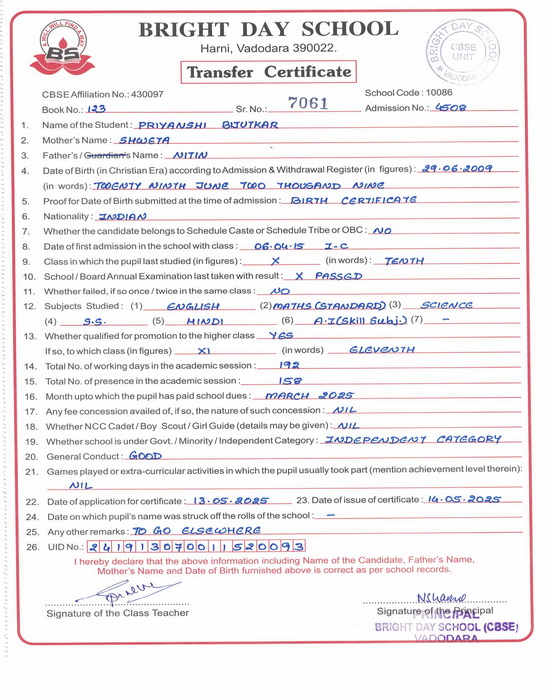 A WILL WILL FIND A WAY
BS
BRIGHT DAY SCHOOL
Harni, Vadodara 390022.
Transfer Certificate
BRIGHT DAY SCHOOL
CBSE
UNIT
VADODARA
CBSE Affiliation No.: 430097 School Code : 10086
Book No.: 123 Sr. No.: 7061 Admission No.: 4508
1. Name of the Student : PRIYANSHI BIJUTKAR
2. Mother's Name : SHWETA
3. Father's / Guardian's Name : NITIN
4. Date of Birth (in Christian Era) according to Admission & Withdrawal Register (in figures) : 29.06.2009
(in words) : TWENTY NINTH JUNE TWO THOUSAND NINE
5. Proof for Date of Birth submitted at the time of admission : BIRTH CERTIFICATE
6. Nationality : INDIAN
7. Whether the candidate belongs to Schedule Caste or Schedule Tribe or OBC : NO
8. Date of first admission in the school with class : 06.04.15 I-C
9. Class in which the pupil last studied (in figures) : X (in words) : TENTH
10. School / Board Annual Examination last taken with result : X PASSED
11. Whether failed, if so once / twice in the same class : NO
12. Subjects Studied : (1) ENGLISH (2) MATHS (STANDARD) (3) SCIENCE
(4) S.S. (5) HINDI (6) A.I (Skill Subj.) (7) -
13. Whether qualified for promotion to the higher class YES
If so, to which class (in figures) XI (in words) ELEVENTH
14. Total No. of working days in the academic session : 192
15. Total No. of presence in the academic session : 158
16. Month upto which the pupil has paid school dues : MARCH 2025
17. Any fee concession availed of, if so, the nature of such concession : NIL
18. Whether NCC Cadet / Boy Scout / Girl Guide (details may be given) : NIL
19. Whether school is under Govt. / Minority / Independent Category : INDEPENDENT CATEGORY
20. General Conduct : GOOD
21. Games played or extra-curricular activities in which the pupil usually took part (mention achievement level therein) :
NIL
22. Date of application for certificate : 13.05.2025 23. Date of issue of certificate : 14.05.2025
24. Date on which pupil's name was struck off the rolls of the school : -
25. Any other remarks : TO GO ELSEWHERE
26. UID No.: 241913070011520093
I hereby declare that the above information including Name of the Candidate, Father's Name,
Mother's Name and Date of Birth furnished above is correct as per school records.
Signature of the Class Teacher Signature of the Principal
PRINCIPAL
BRIGHT DAY SCHOOL (CBSE)
VADODARA